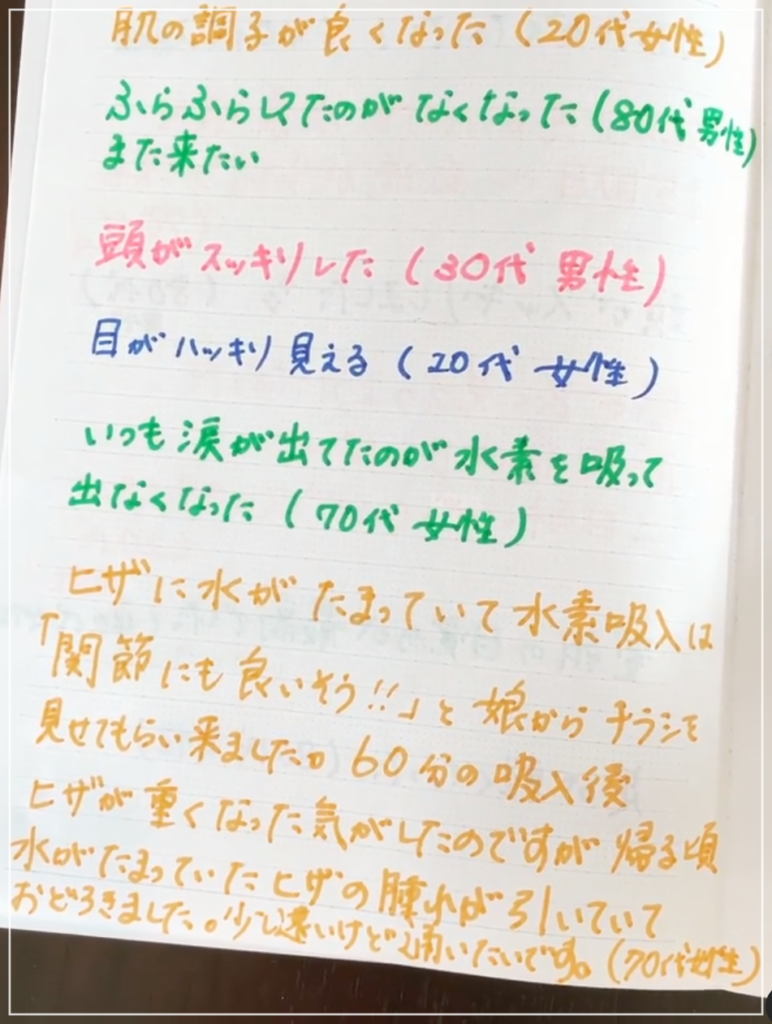 肌の調子が良くなった (20代女性)
ふらふらしてたのがなくなった (80代 男性)
また来たい
頭がスッキリした (30代 男性)
目がハッキリ見える (20代 女性)
いつも涙が出てたのが水素を吸って
出なくなった (70代 女性)
ヒザに水がたまっていて水素吸入は
「関節にも良いそう!!」と娘からチラシを
見せてもらい来ましたが60分の吸入後
ヒザが重くなった気がしたのですが帰る頃
水がたまっていたヒザの腫れが引いていて
おどろきました。少し遠いけど通いたいです。(70代女性)